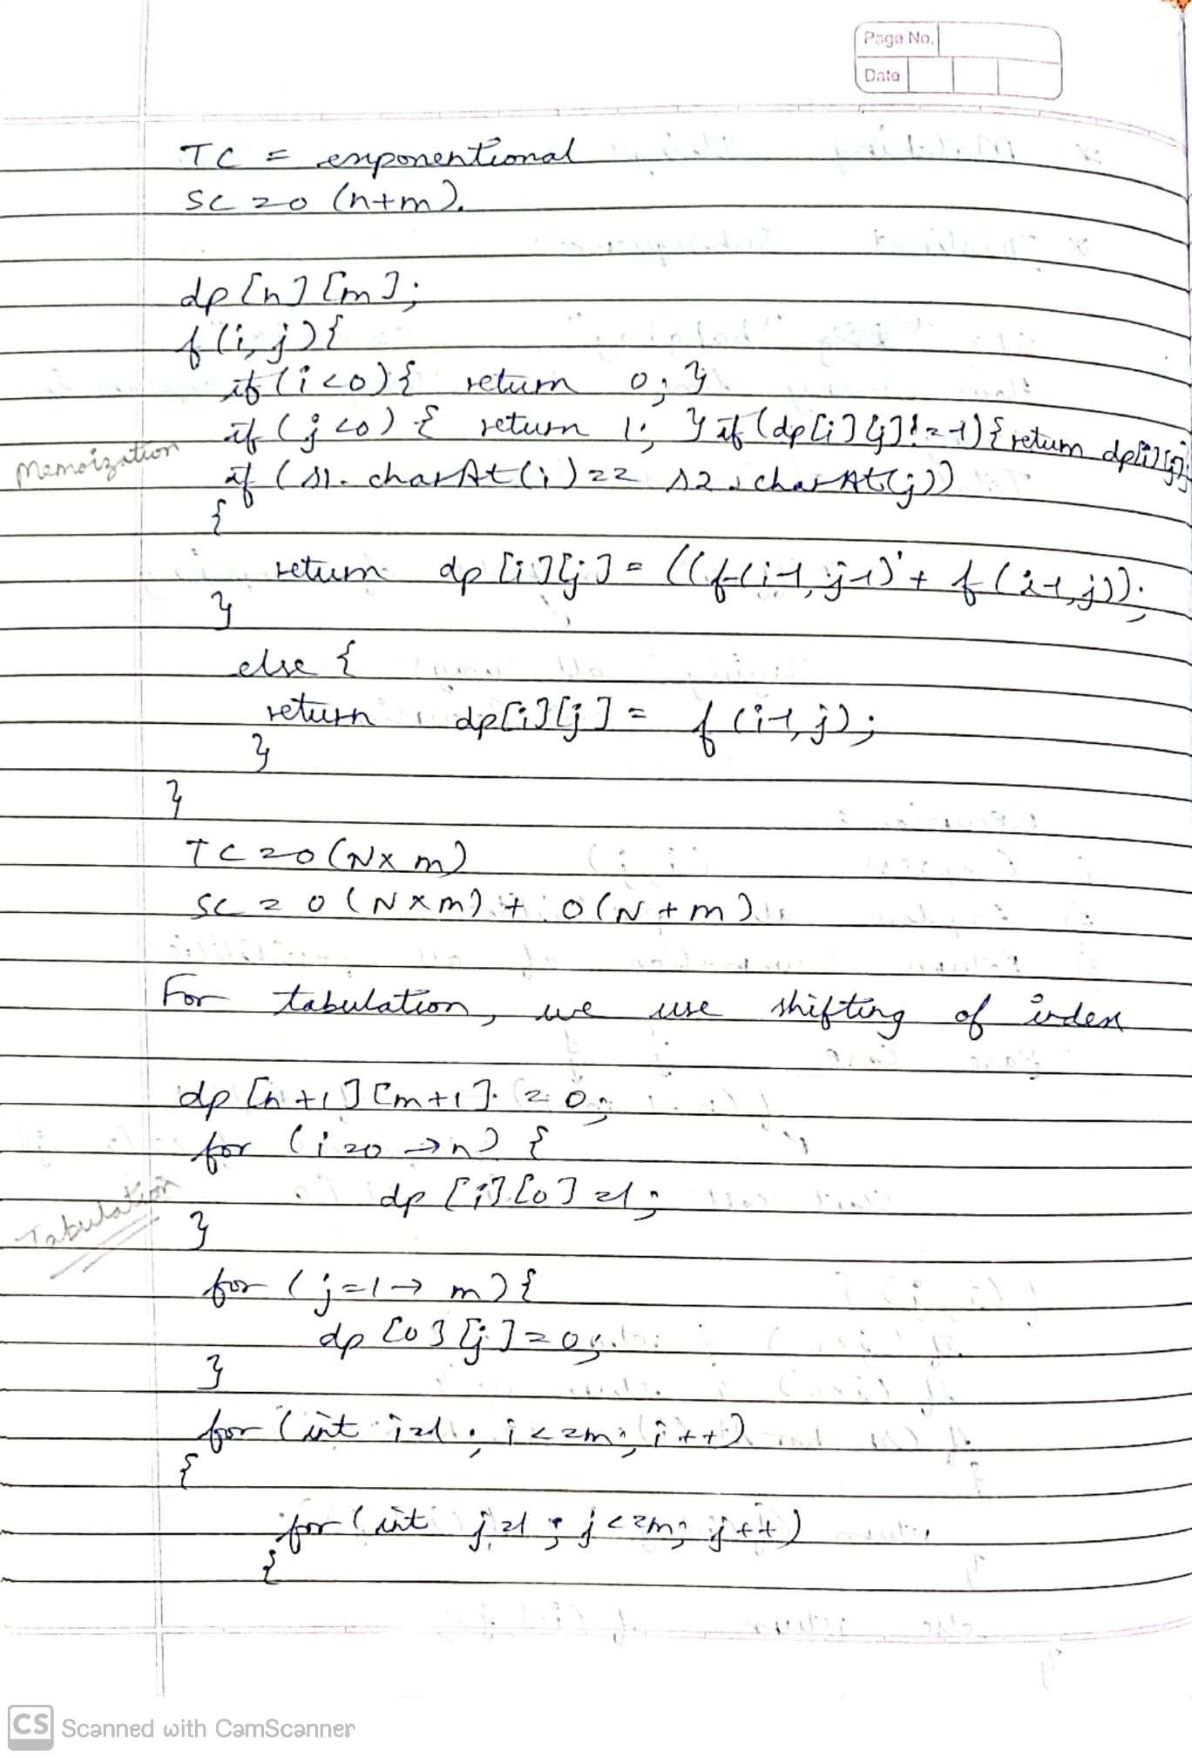 Page No.
Date
TC = exponentional
SC = O (n+m).
dp [n] [m];
f (i, j) {
if (i<0) { return 0; }
if (j<0) { return 1; } if (dp[i][j] != -1) { return dp[i][j];
Memoization
if (s1. charAt(i) == s2. charAt(j))
{
return dp [i][j] = ((f(i-1, j-1) + f (i-1, j));
}
else {
return dp[i][j] = f (i-1, j);
}
}
TC = O (N x m)
SC = O (N x m) + O (N + m)
For tabulation, we use shifting of index
dp [n+1] [m+1] = 0;
for (i=0 → n) {
dp [i] [0] = 1;
Tabulation
}
for (j=1 → m) {
dp [0] [j] = 0;
}
for (int i=1; i<=m; i++)
{
for (int j=1; j<=m; j++)
{
CS Scanned with CamScanner